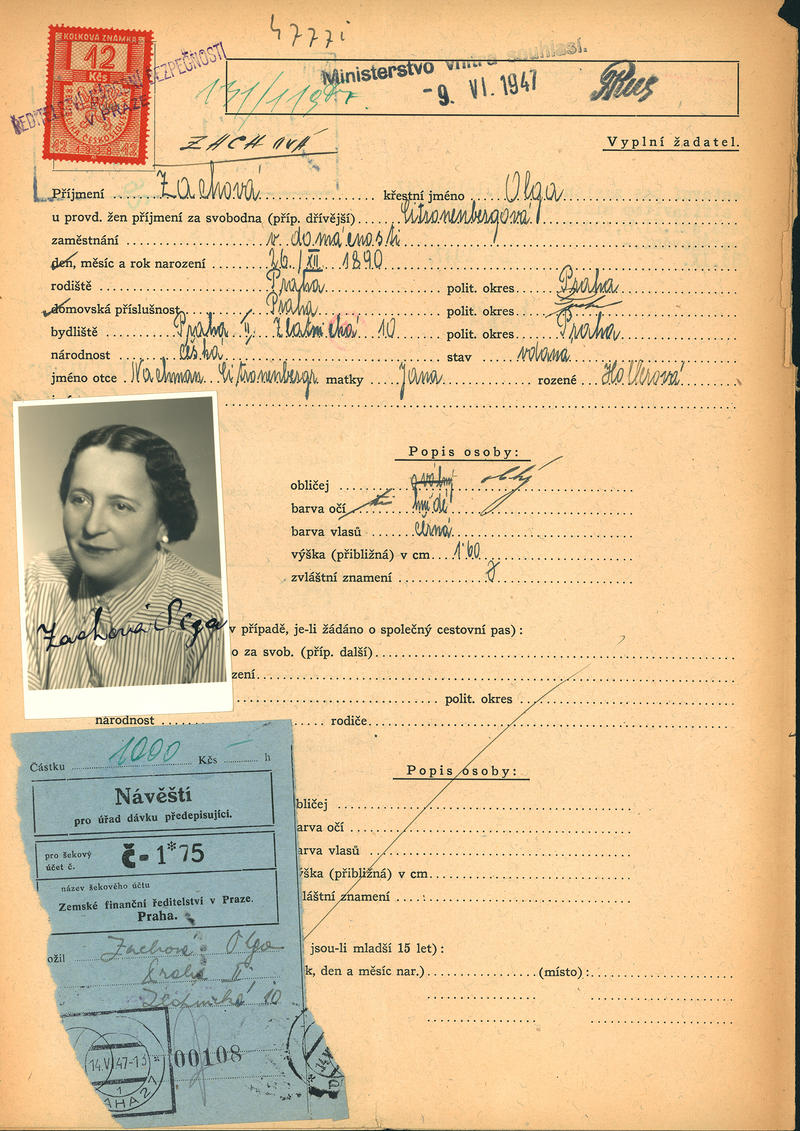 4777i
KOLKOVÁ ZNÁMKA
12
Kčs
ŘEDITELSTVÍ NÁRODNÍ BEZPEČNOSTI
V PRAZE
Ministerstvo vnitra souhlasí.
-9. VI. 1947
ZACHOVÁ
Vyplní žadatel.
Příjmení Zachová křestní jméno Olga
u provd. žen příjmení za svobodna (příp. dřívější) Citronenbergová
zaměstnání v domácnosti
den, měsíc a rok narození 26./XII. 1890
rodiště Praha polit. okres Praha
domovská příslušnost Praha polit. okres
bydliště Praha II. Zlatnická 10 polit. okres Praha
národnost česká stav vdana
jméno otce Nachman Citronenbergr matky Jana rozené Hollerová
Popis osoby:
obličej oválný oblý
barva očí hnědé
barva vlasů černá
výška (přibližná) v cm 1˙60
zvláštní znamení
Zachová Olga
v případě, je-li žádáno o společný cestovní pas):
o za svob. (příp. další)
zení
polit. okres
národnost rodiče
Částku 1000 Kčs h
Návěští
pro úřad dávku předepisující.
pro šekový účet č. č-1*75
název šekového účtu
Zemské finanční ředitelství v Praze.
Praha.
ožil Zachová Olga
Praha II
Zlatnická 10
14.VI.47-13
1
AHA 27
00108
Popis osoby:
bličej
arva očí
arva vlasů
ýška (přibližná) v cm
vláštní znamení
jsou-li mladší 15 let):
k, den a měsíc nar.) (místo):